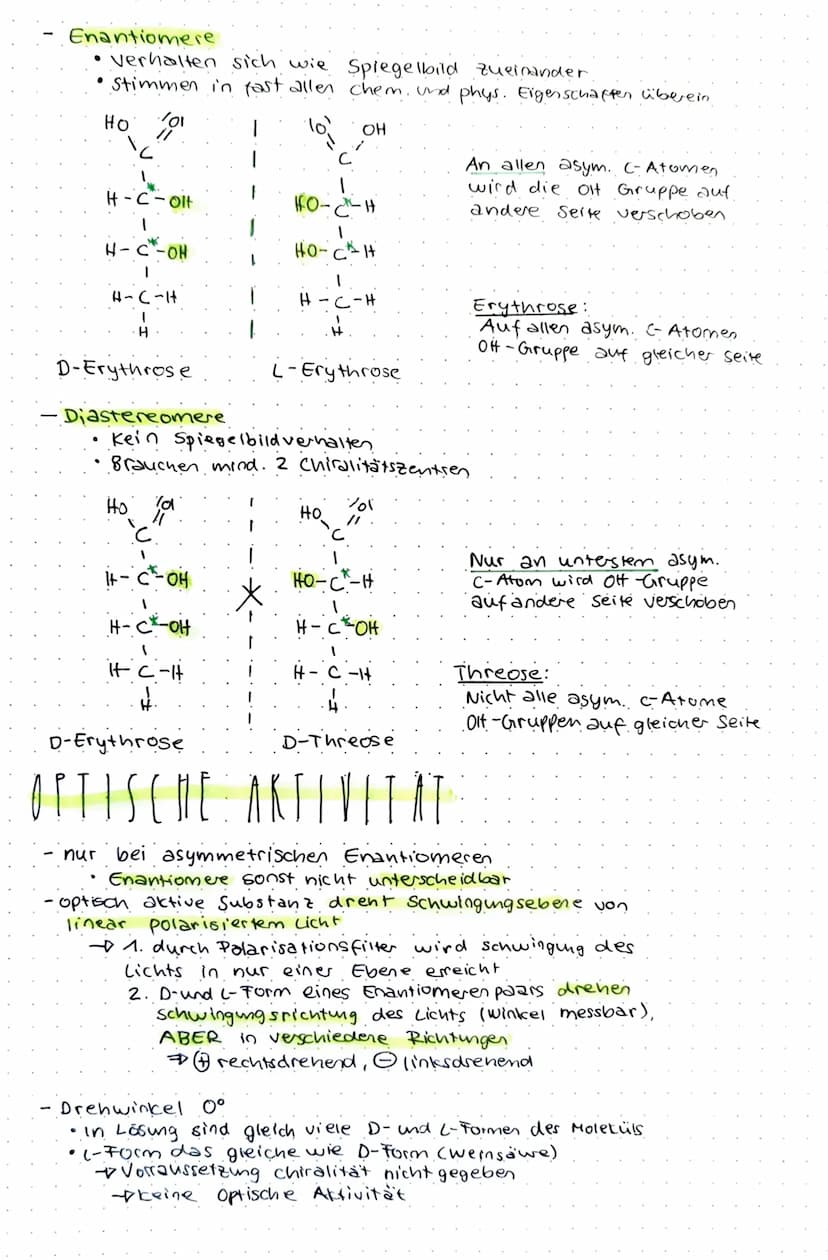 - Enantiomere
• verhalten sich wie Spiegelbild zueinander
• stimmen in fast allen chem. und phys. Eigenschaften überein
HO /O|
C
H-C*-OH
H-C*-OH
H-C-H
H
D-Erythrose
|O\ OH
C
HO-C*-H
HO-C*-H
H-C-H
H
L-Erythrose
An allen asym. C-Atomen
wird die OH Gruppe auf
andere Seite verschoben
Erythrose:
Auf allen asym. C-Atomen
OH-Gruppe auf gleicher Seite
- Diastereomere
• Kein Spiegelbildverhalten
• Brauchen mind. 2 Chiralitätszentren
HO /O|
C
H-C*-OH
H-C*-OH
H-C-H
H
D-Erythrose
HO /O|
C
HO-C*-H
H-C*-OH
H-C-H
H
D-Threose
Nur an unterstem asym.
C-Atom wird OH-Gruppe
auf andere Seite verschoben
Threose:
Nicht alle asym. C-Atome
OH-Gruppen auf gleicher Seite
OPTISCHE AKTIVITÄT
- nur bei asymmetrischen Enantiomeren
• Enantiomere sonst nicht unterscheidbar
- optisch aktive Substanz dreht Schwingungsebene von
linear polarisiertem Licht
→ 1. durch Polarisationsfilter wird schwingung des
Lichts in nur einer Ebene erreicht
2. D-und L-Form eines Enantiomerenpaars drehen
schwingungsrichtung des Lichts (Winkel messbar),
ABER in verschiedene Richtungen
⇒ ⊕ rechtsdrehend, ⊖ linksdrehend
- Drehwinkel 0°
• in Lösung sind gleich viele D- und L-Formen des Moleküls
• L-Form das gleiche wie D-Form (Weinsäure)
→ Vorraussetzung chiralität nicht gegeben
→ keine Optische Aktivität